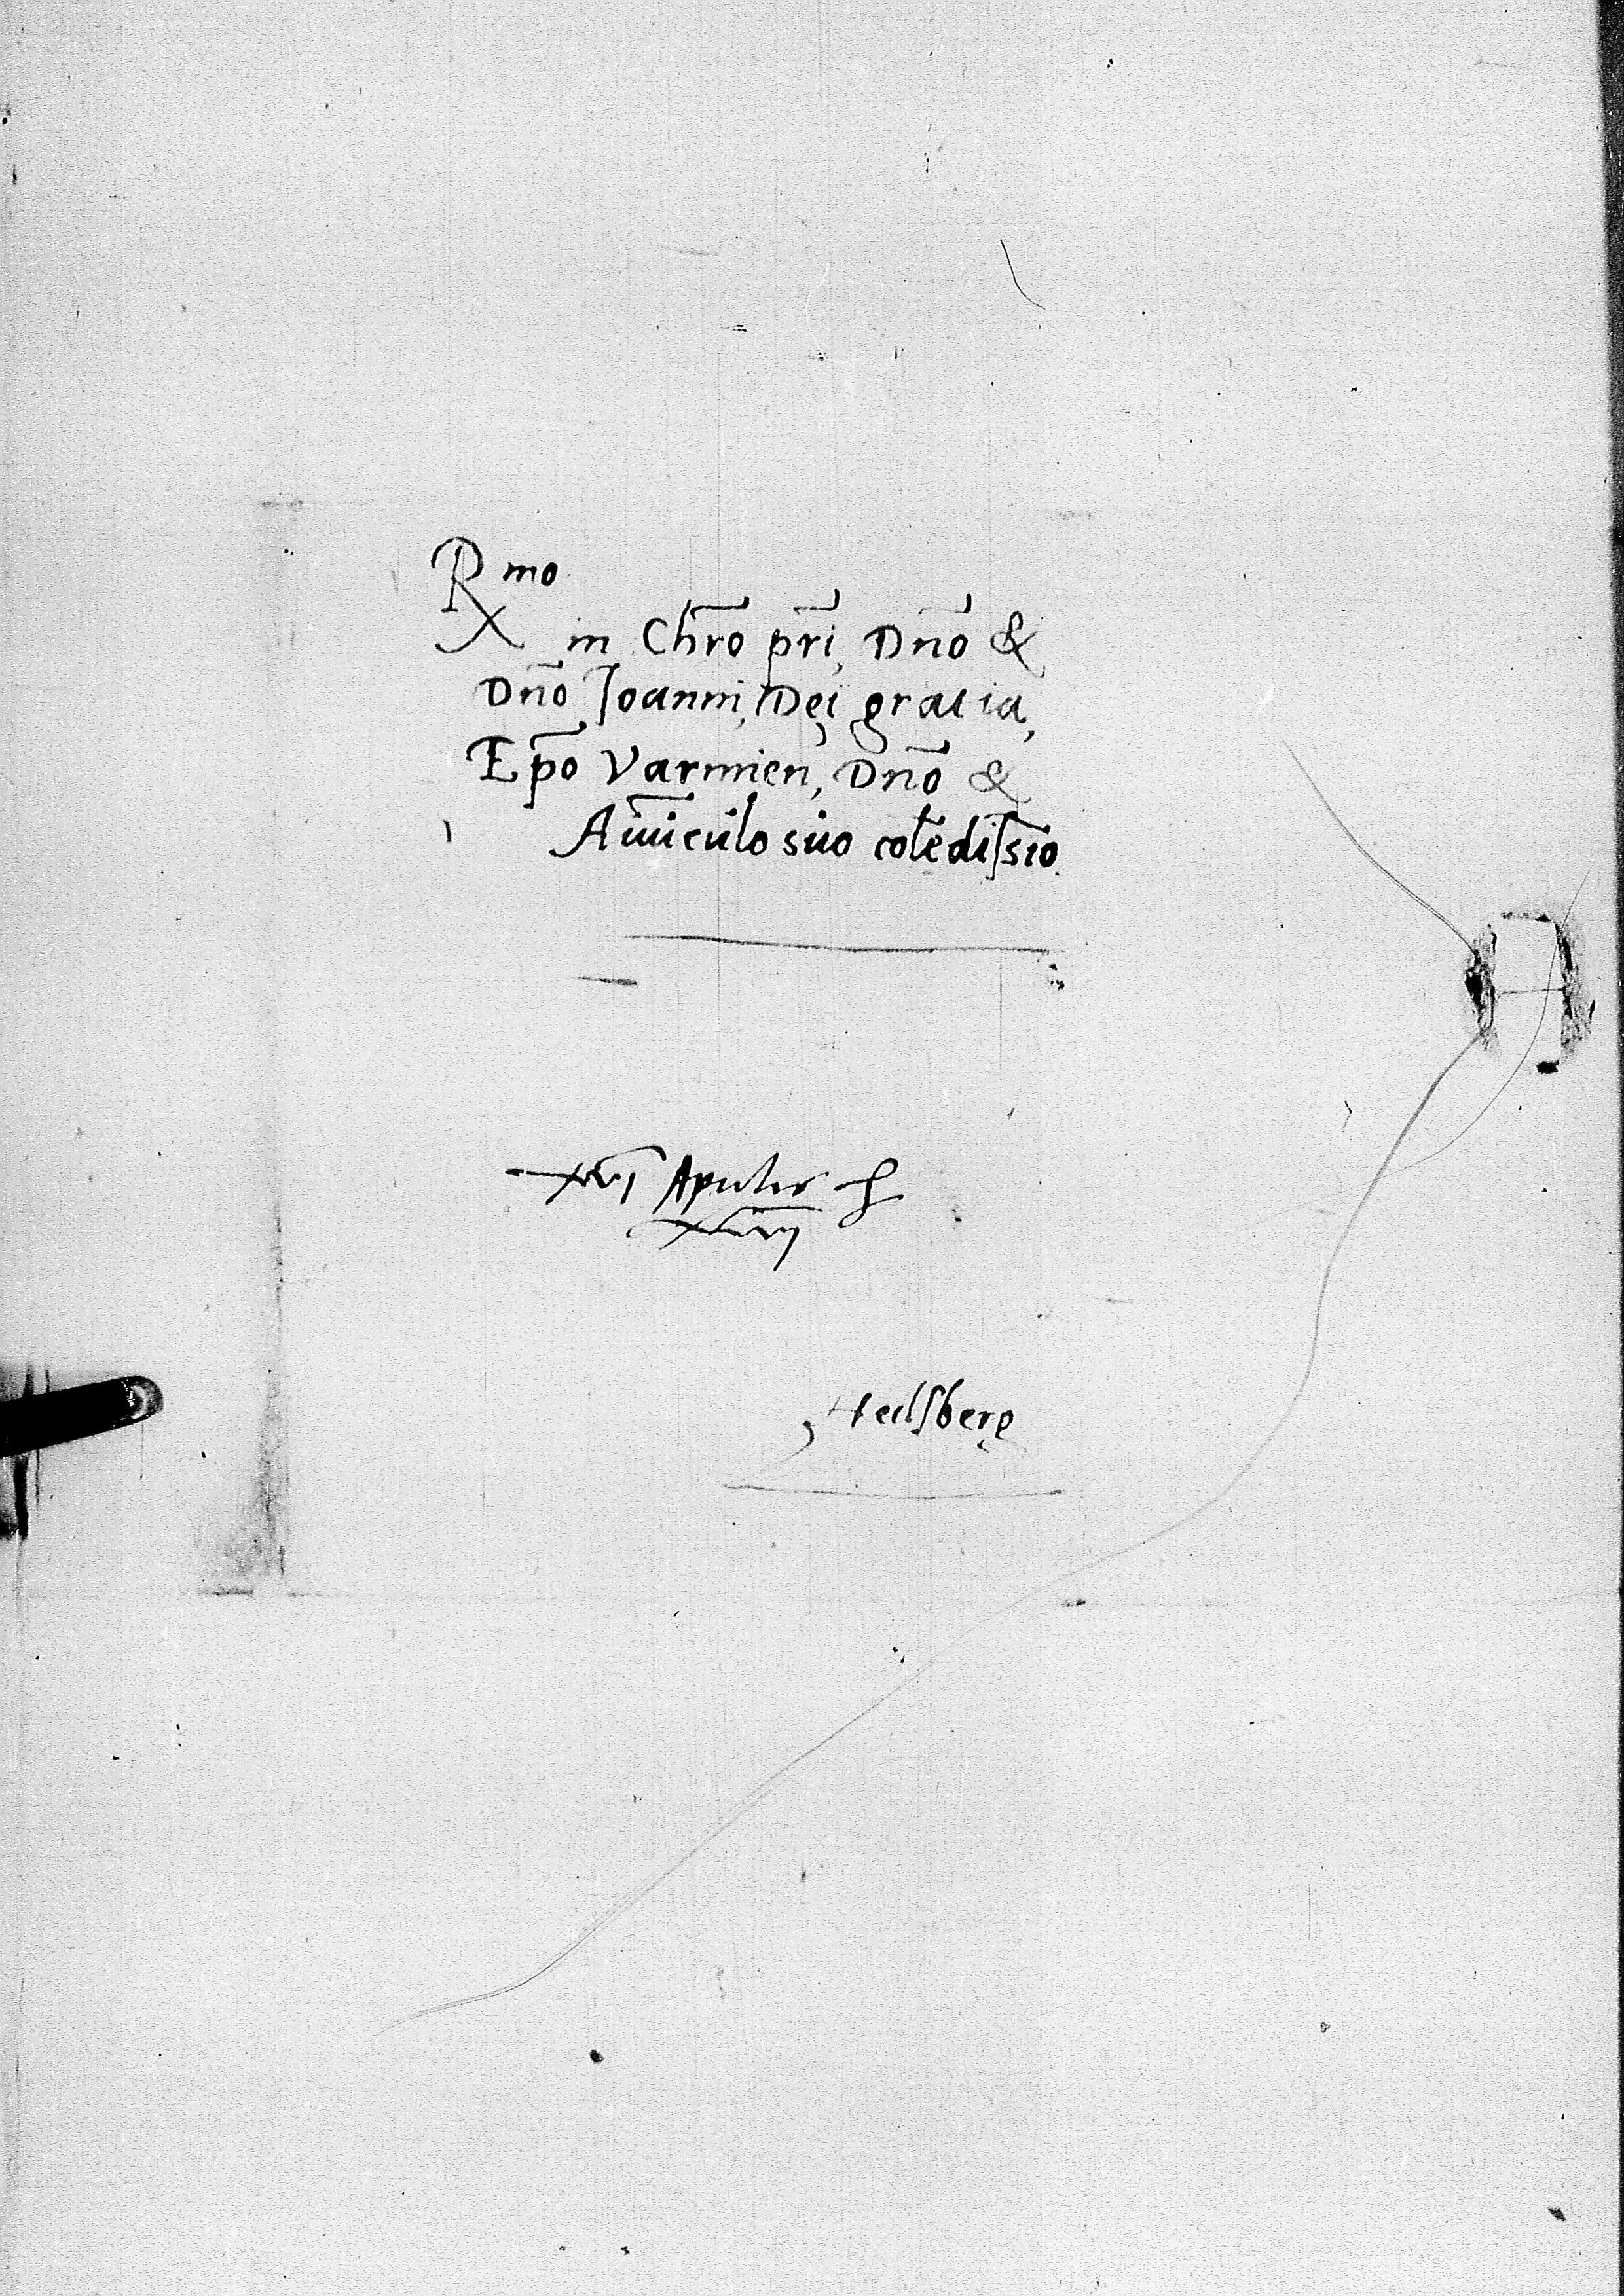 Rmo
in Chr̄o pr̄i, Dn̄o &
Dn̄o Joanni, Dei gratia,
Ep̄o Varmien, Dn̄o &
Avūculo suo colēdiſsīo.
xvi Aprilis
Heilſberg